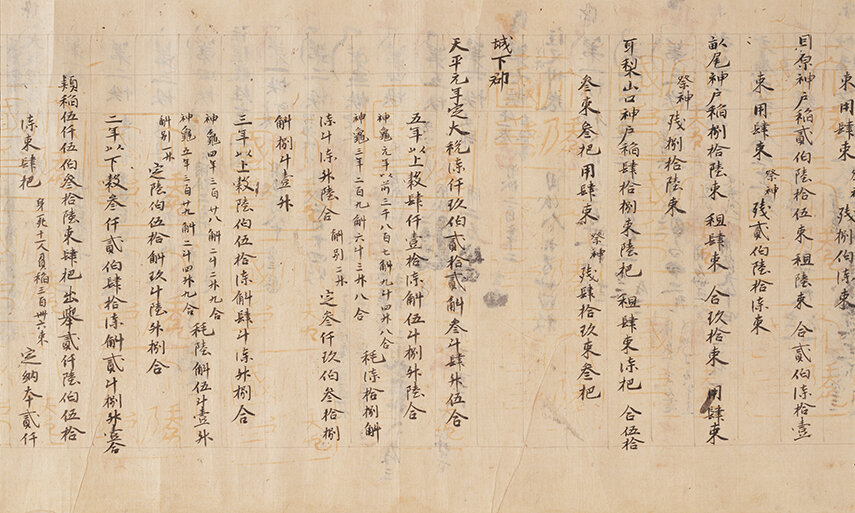 束用肆束 祭神 残捌伯漆束
目原神戸稲貳伯陸拾伍束 租陸束 合貳伯漆拾壹
束 用肆束 祭神 残貳伯陸拾漆束
畝尾神戸稲捌拾陸束 租肆束 合玖拾束 用肆束
祭神 残捌拾陸束
耳梨山口神戸稲肆拾捌束陸把 租肆束漆把 合伍拾
叄束叄把 用肆束 祭神 残肆拾玖束叄把
城下郡
天平元年定大税漆仟玖伯貳拾貳斛叄斗肆升伍合
五年以上穀肆仟壹拾漆斛伍斗捌升陸合
神龜元年以前三千八百七斛九斗四升八合
神龜三年二百九斛六斗三升八合 耗漆拾捌斛
漆斗漆升陸合 斛別二升 定叄仟玖伯叄拾捌
斛捌斗壹升
三年以上穀陸伯伍拾漆斛肆斗漆升捌合
神龜四年三百廿八斛二斗二升九合
神龜五年三百廿九斛二斗四升九合 耗陸斛伍斗壹升
斛別一升 定陸伯伍拾斛玖斗陸升捌合
二年以下穀叄仟貳伯肆拾漆斛貳斗捌升壹合
穎稲伍仟伍伯叄拾陸束肆把 出擧貳仟陸伯伍拾
漆束肆把 身死十一人負稲三百卌六束 定納本貳仟